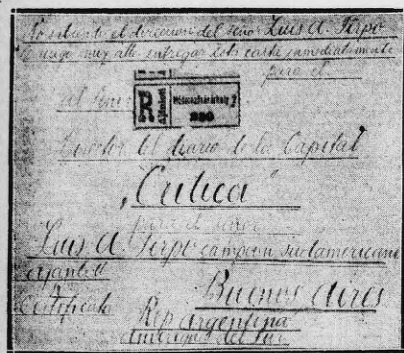 No sabiendo el direccion del señor Luis A. Firpo
ruego muy att. entregar esta carta inmediatamente
para el
al Señor
R
Ajánlott
200
Director del diario de la Capital
"Critica"
para el señor
Luis A. Firpo campeon sudamericano
ajanlott
Certificata
Buenos Aires
Rep. Argentina
America del Sur